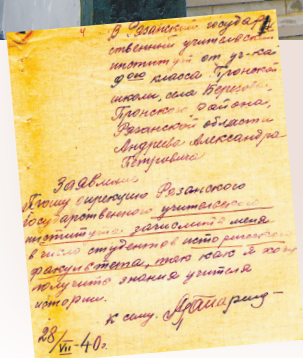 В Рязанский государ-
ственный учительский
институт от уч-ка
10го класса Пронской
школы, села Березово,
Пронского района,
Рязанской области
Андреева Александра
Петровича
Заявление
Прошу дирекцию Рязанского
Государственного учительского
института зачислить меня
в число студентов исторического
факультета, так как я хочу
получить знания учителя
истории.
К сему.
28/VII-40г.